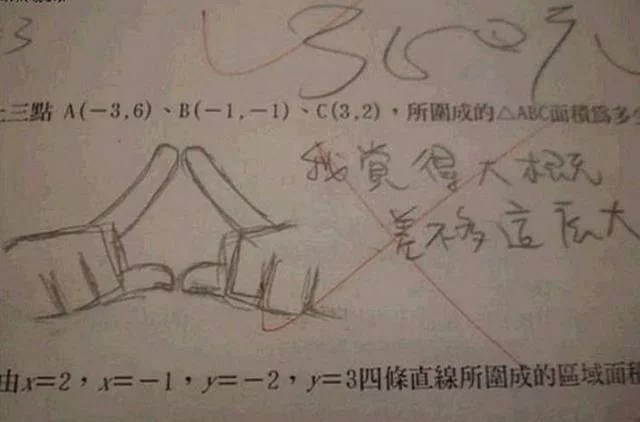 3
三點 A(-3,6)、B(-1,-1)、C(3,2)，所圍成的△ABC面積為多
我覺得大概
差不多這麼大
由x=2，x=-1，y=-2，y=3四條直線所圍成的區域面積